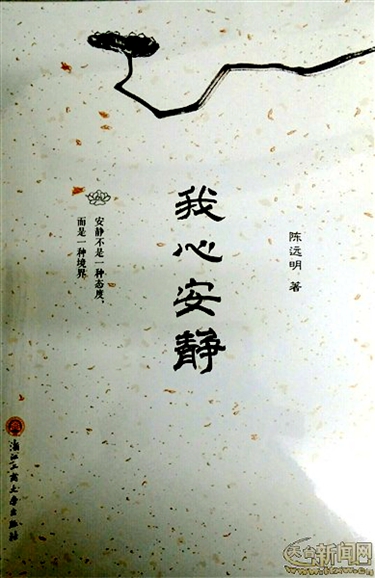 我心安静
陈远明 著
安静不是一种态度，
而是一种境界
浙江工商大学出版社
天台新闻网